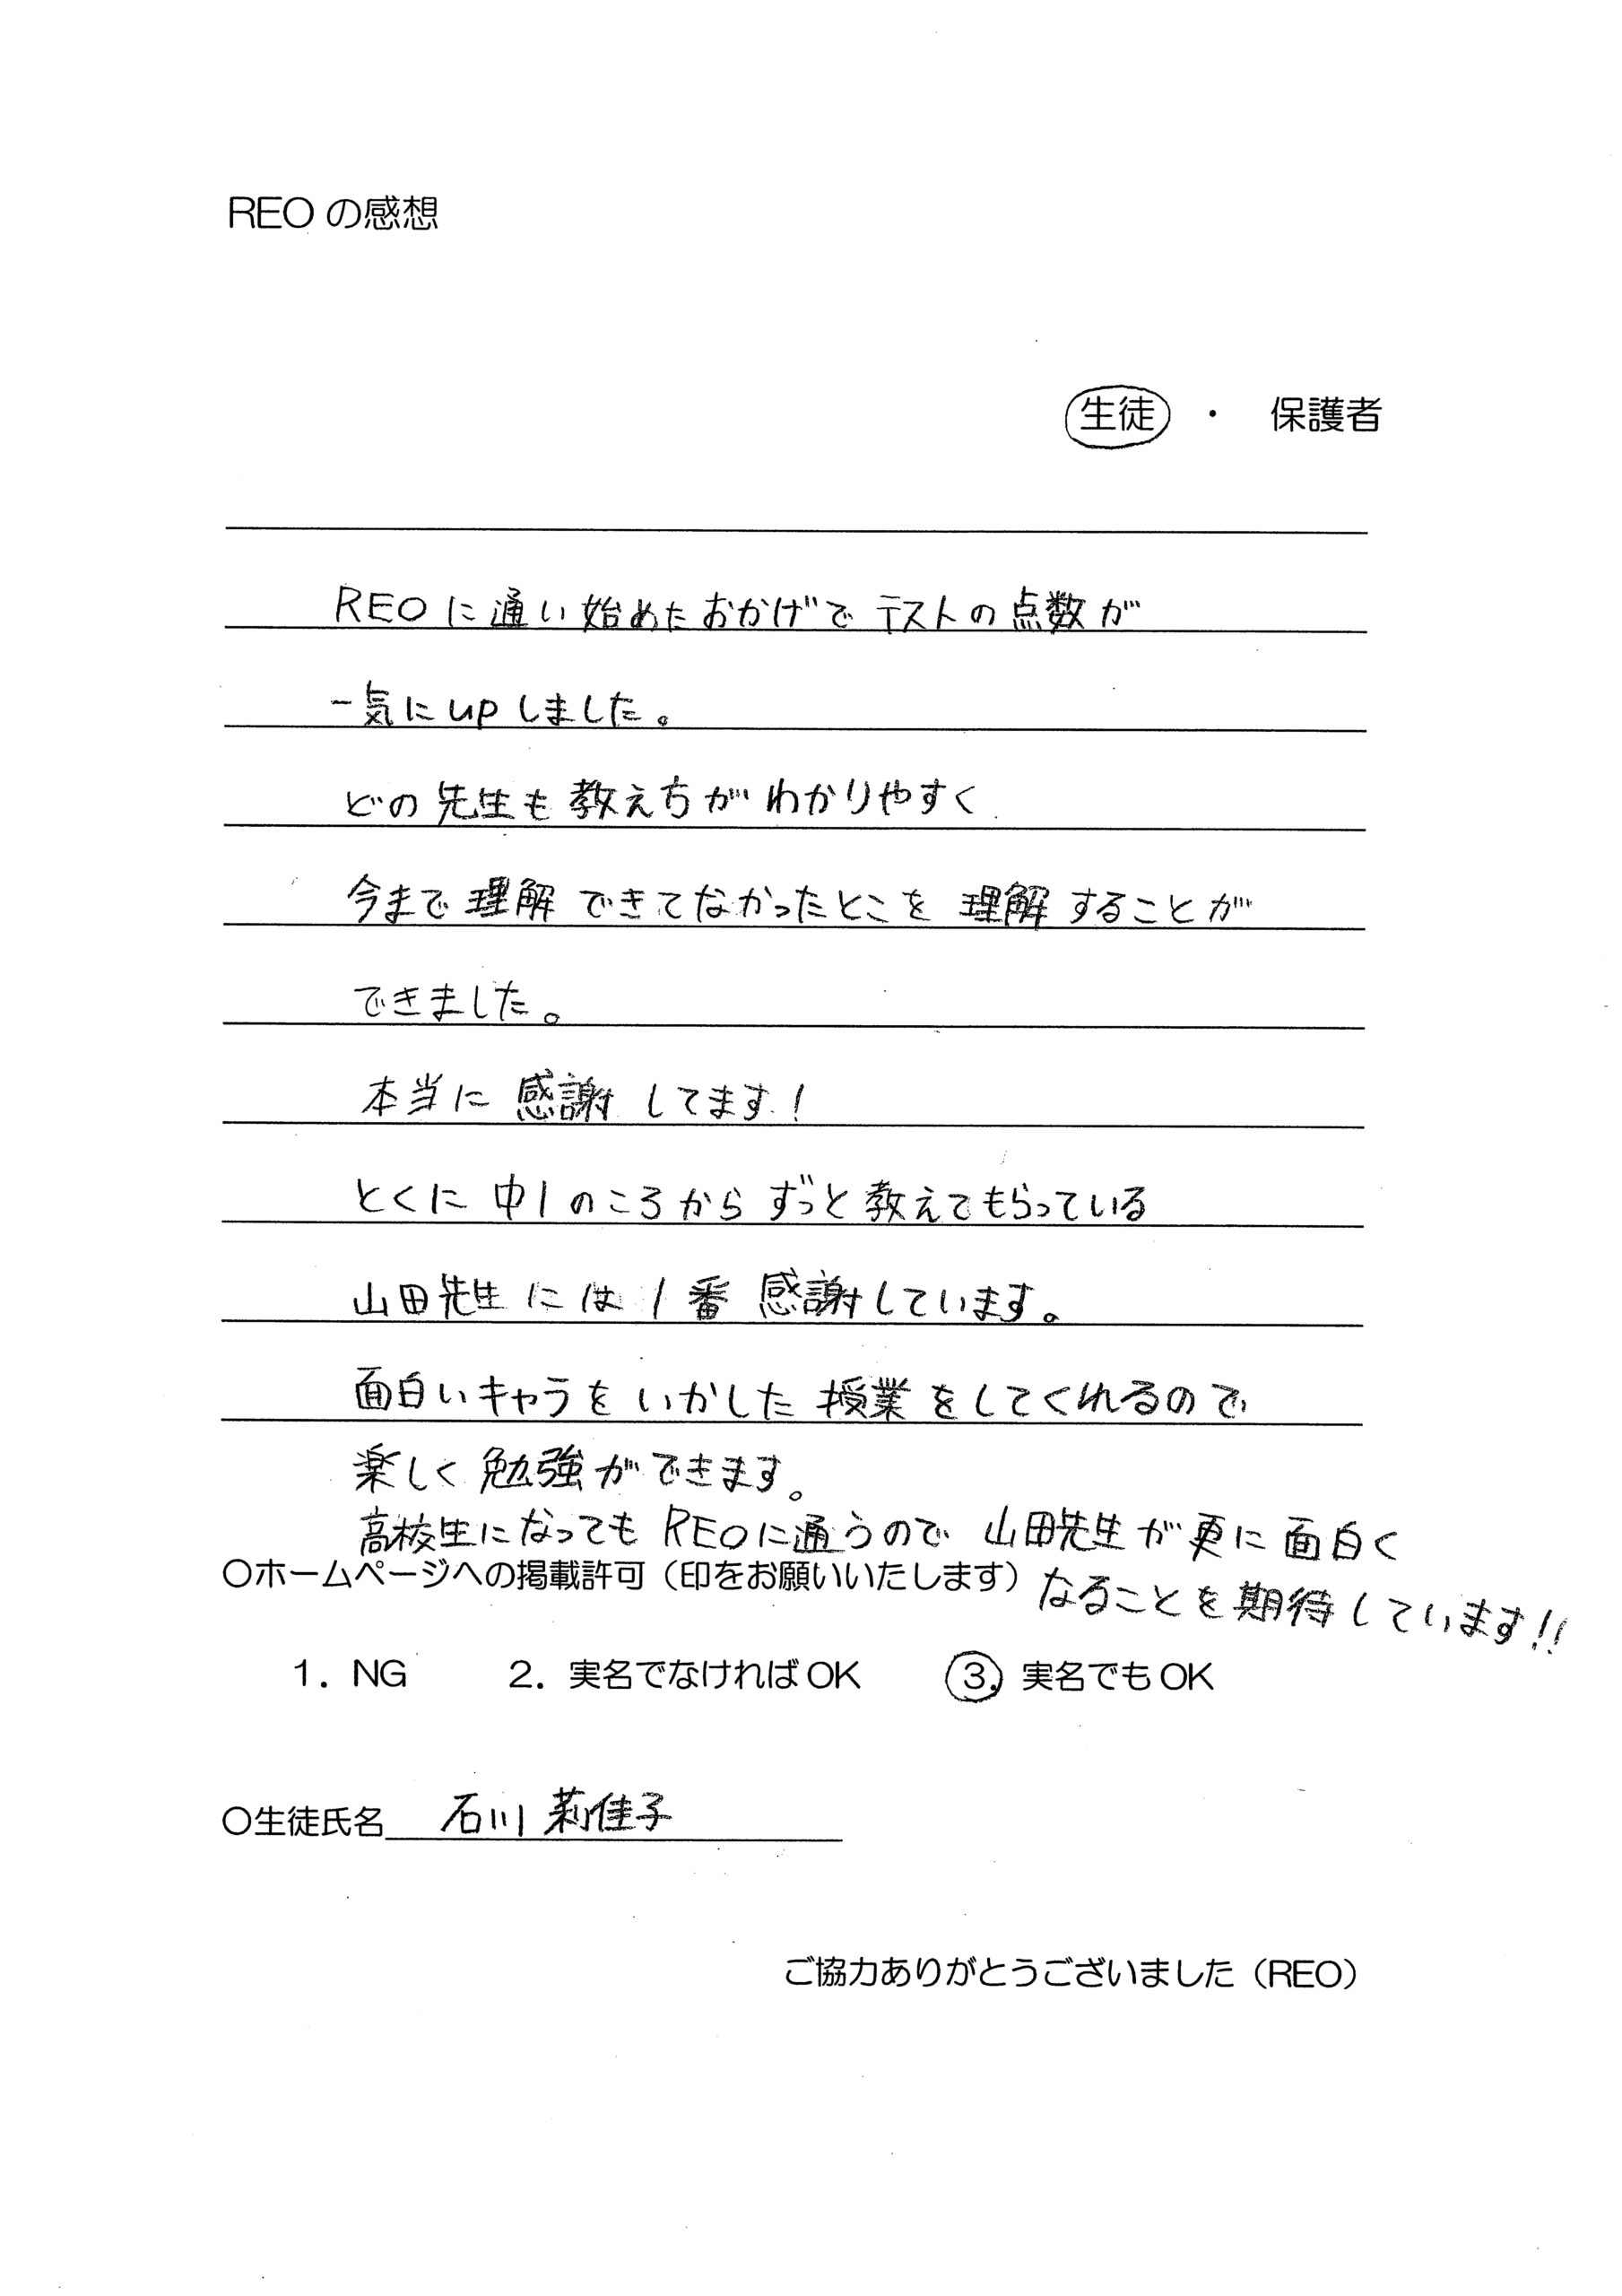 REO の感想
生徒 ・ 保護者
REOに通い始めたおかげでテストの点数が
一気にupしました。
どの先生も教え方がわかりやすく
今まで理解できてなかったとこを理解することが
できました。
本当に感謝してます!
とくに中1のころからずっと教えてもらっている
山田先生には1番感謝しています。
面白いキャラをいかした授業をしてくれるので
楽しく勉強ができます。
高校生になってもREOに通うので山田先生が更に面白く
なることを期待しています!!
○ホームページへの掲載許可(印をお願いいたします)
1. NG 2. 実名でなければOK 3. 実名でもOK
○生徒氏名 石川 莉佳子
ご協力ありがとうございました(REO)